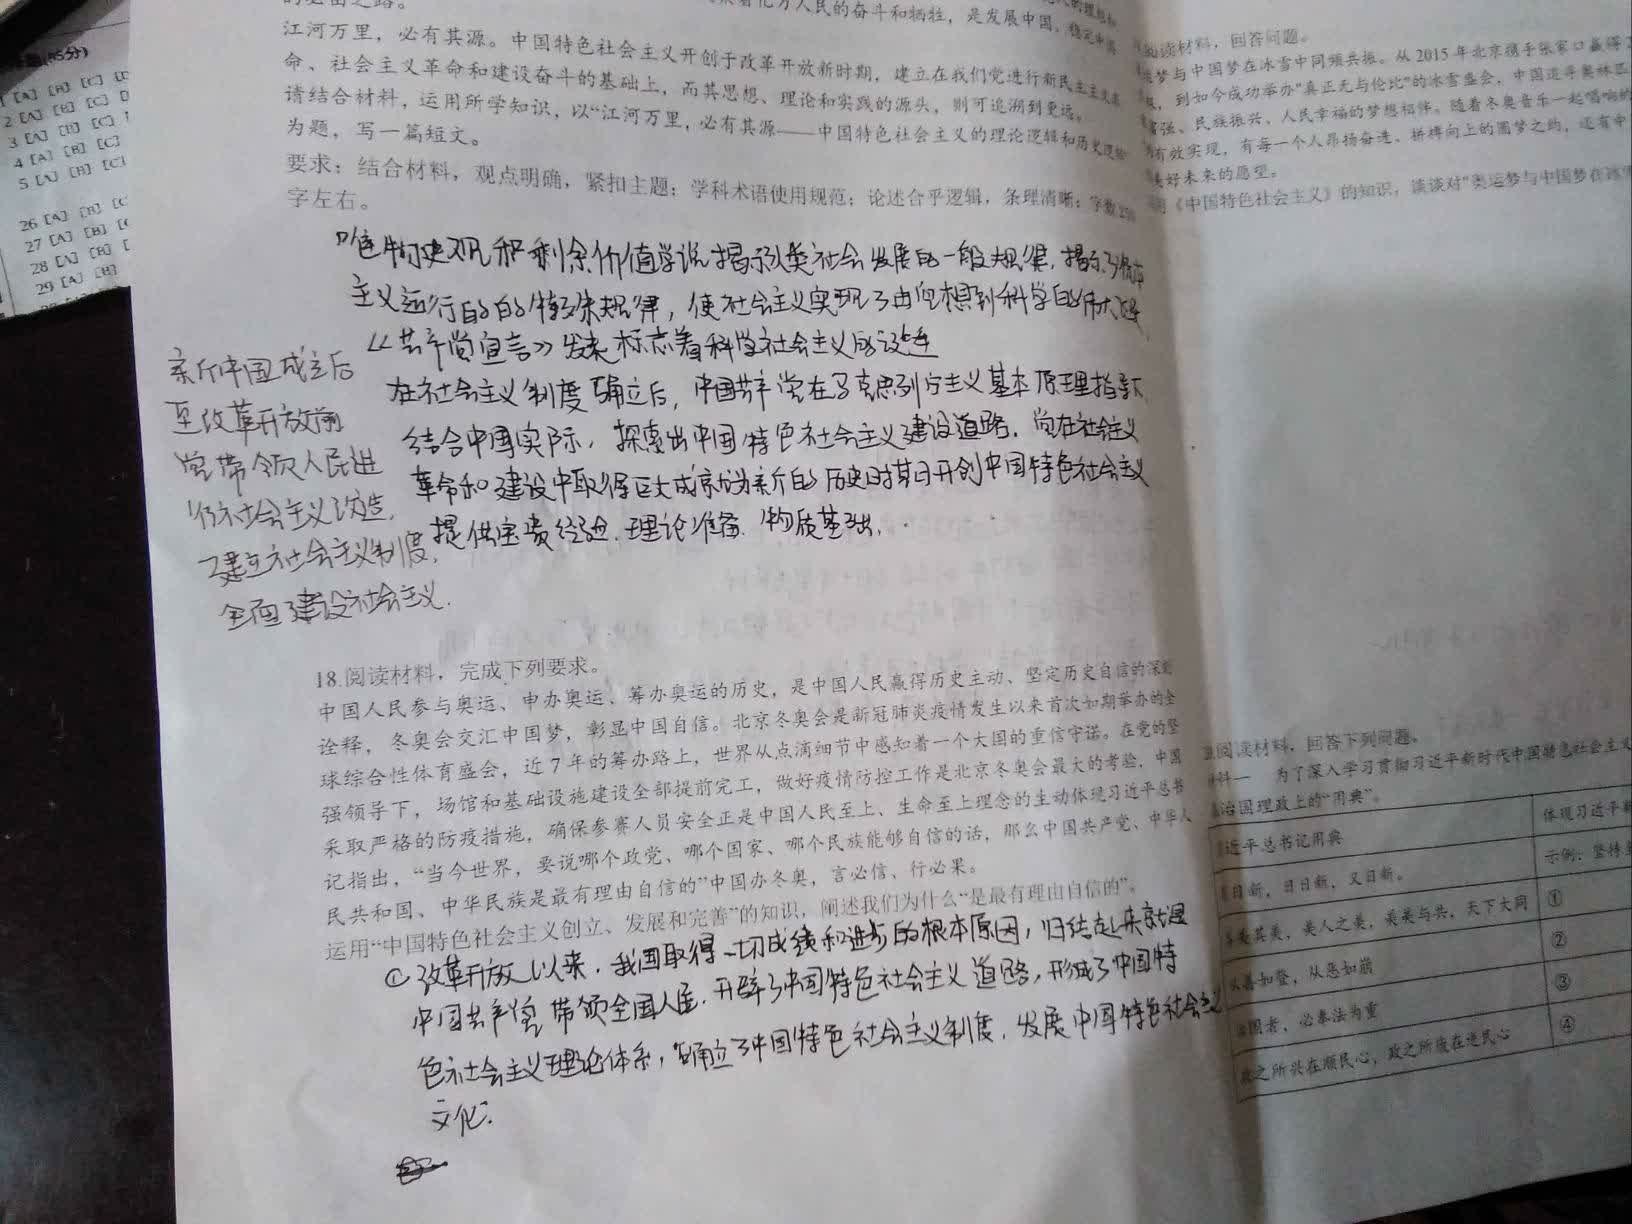 江河万里，必有其源。中国特色社会主义开创于改革开放新时期，建立在我们党进行新民主主义革
命、社会主义革命和建设奋斗的基础上，而其思想、理论和实践的源头，则可追溯到更远。
请结合材料，运用所学知识，以“江河万里，必有其源——中国特色社会主义的理论逻辑和历史逻辑”
为题，写一篇短文。
要求：结合材料，观点明确，紧扣主题；学科术语使用规范；论述合乎逻辑，条理清晰；字数
字左右。
唯物史观和剩余价值学说揭示人类社会发展的一般规律，揭示了资本
主义运行的的特殊规律，使社会主义实现了由空想到科学的伟大飞跃
《共产党宣言》发表标志着科学社会主义的诞生
在社会主义制度确立后，中国共产党在马克思列宁主义基本原理指导下，
结合中国实际，探索出中国特色社会主义建设道路，党在社会主义
革命和建设中取得巨大成就为新的历史时期开创中国特色社会主义
提供宝贵经验、理论准备、物质基础。
新中国成立后
至改革开放前
党带领人民进
行社会主义改造，
建立社会主义制度，
全面建设社会主义.
18.阅读材料，完成下列要求。
中国人民参与奥运、申办奥运、筹办奥运的历史，是中国人民赢得历史主动、坚定历史自信的深刻
诠释，冬奥会交汇中国梦，彰显中国自信。北京冬奥会是新冠肺炎疫情发生以来首次如期举办的全
球综合性体育盛会，近 7 年的筹办路上，世界从点滴细节中感知着一个大国的重信守诺。在党的坚
强领导下，场馆和基础设施建设全部提前完工，做好疫情防控工作是北京冬奥会最大的考验，中国
采取严格的防疫措施，确保参赛人员安全正是中国人民至上、生命至上理念的生动体现习近平总书
记指出，“当今世界，要说哪个政党、哪个国家、哪个民族能够自信的话，那么中国共产党、中华人
民共和国、中华民族是最有理由自信的”中国办冬奥，言必信、行必果。
运用“中国特色社会主义创立、发展和完善”的知识，阐述我们为什么“是最有理由自信的”。
① 改革开放以来，我国取得一切成绩和进步的根本原因，归结起来就是
中国共产党带领全国人民，开辟了中国特色社会主义道路，形成了中国特
色社会主义理论体系，确立了中国特色社会主义制度，发展中国特色社会主义
文化.
阅读材料，回答问题。
梦与中国梦在冰雪中同频共振。从 2015 年北京携手张家口赢得
，到如今成功举办“真正无与伦比”的冰雪盛会，中国追寻奥林匹
富强、民族振兴、人民幸福的梦想相伴。随着冬奥音乐一起唱响的
有效实现，有每一个人昂扬奋进、拼搏向上的圆梦之约，还有中
美好未来的愿望。
《中国特色社会主义》的知识，谈谈对“奥运梦与中国梦在
阅读材料，回答下列问题。
材料一 为了深入学习贯彻习近平新时代中国特色社会主义
治国理政上的“用典”。
近平总书记用典
体现习近平新
日新，日日新，又日新。
示例：坚持
美其美，美人之美，美美与共，天下大同
①
从善如登，从恶如崩
②
国者，必奉法为重
③
政之所兴在顺民心，政之所废在逆民心
④
1 [A] [B] [C]
2 [A] [B] [C]
3 [A] [B] [C]
4 [A] [B] [C]
5 [A] [B] [C]
26 [A] [B] [C]
27 [A] [B]
28 [A] [B]
29 [A] [B]